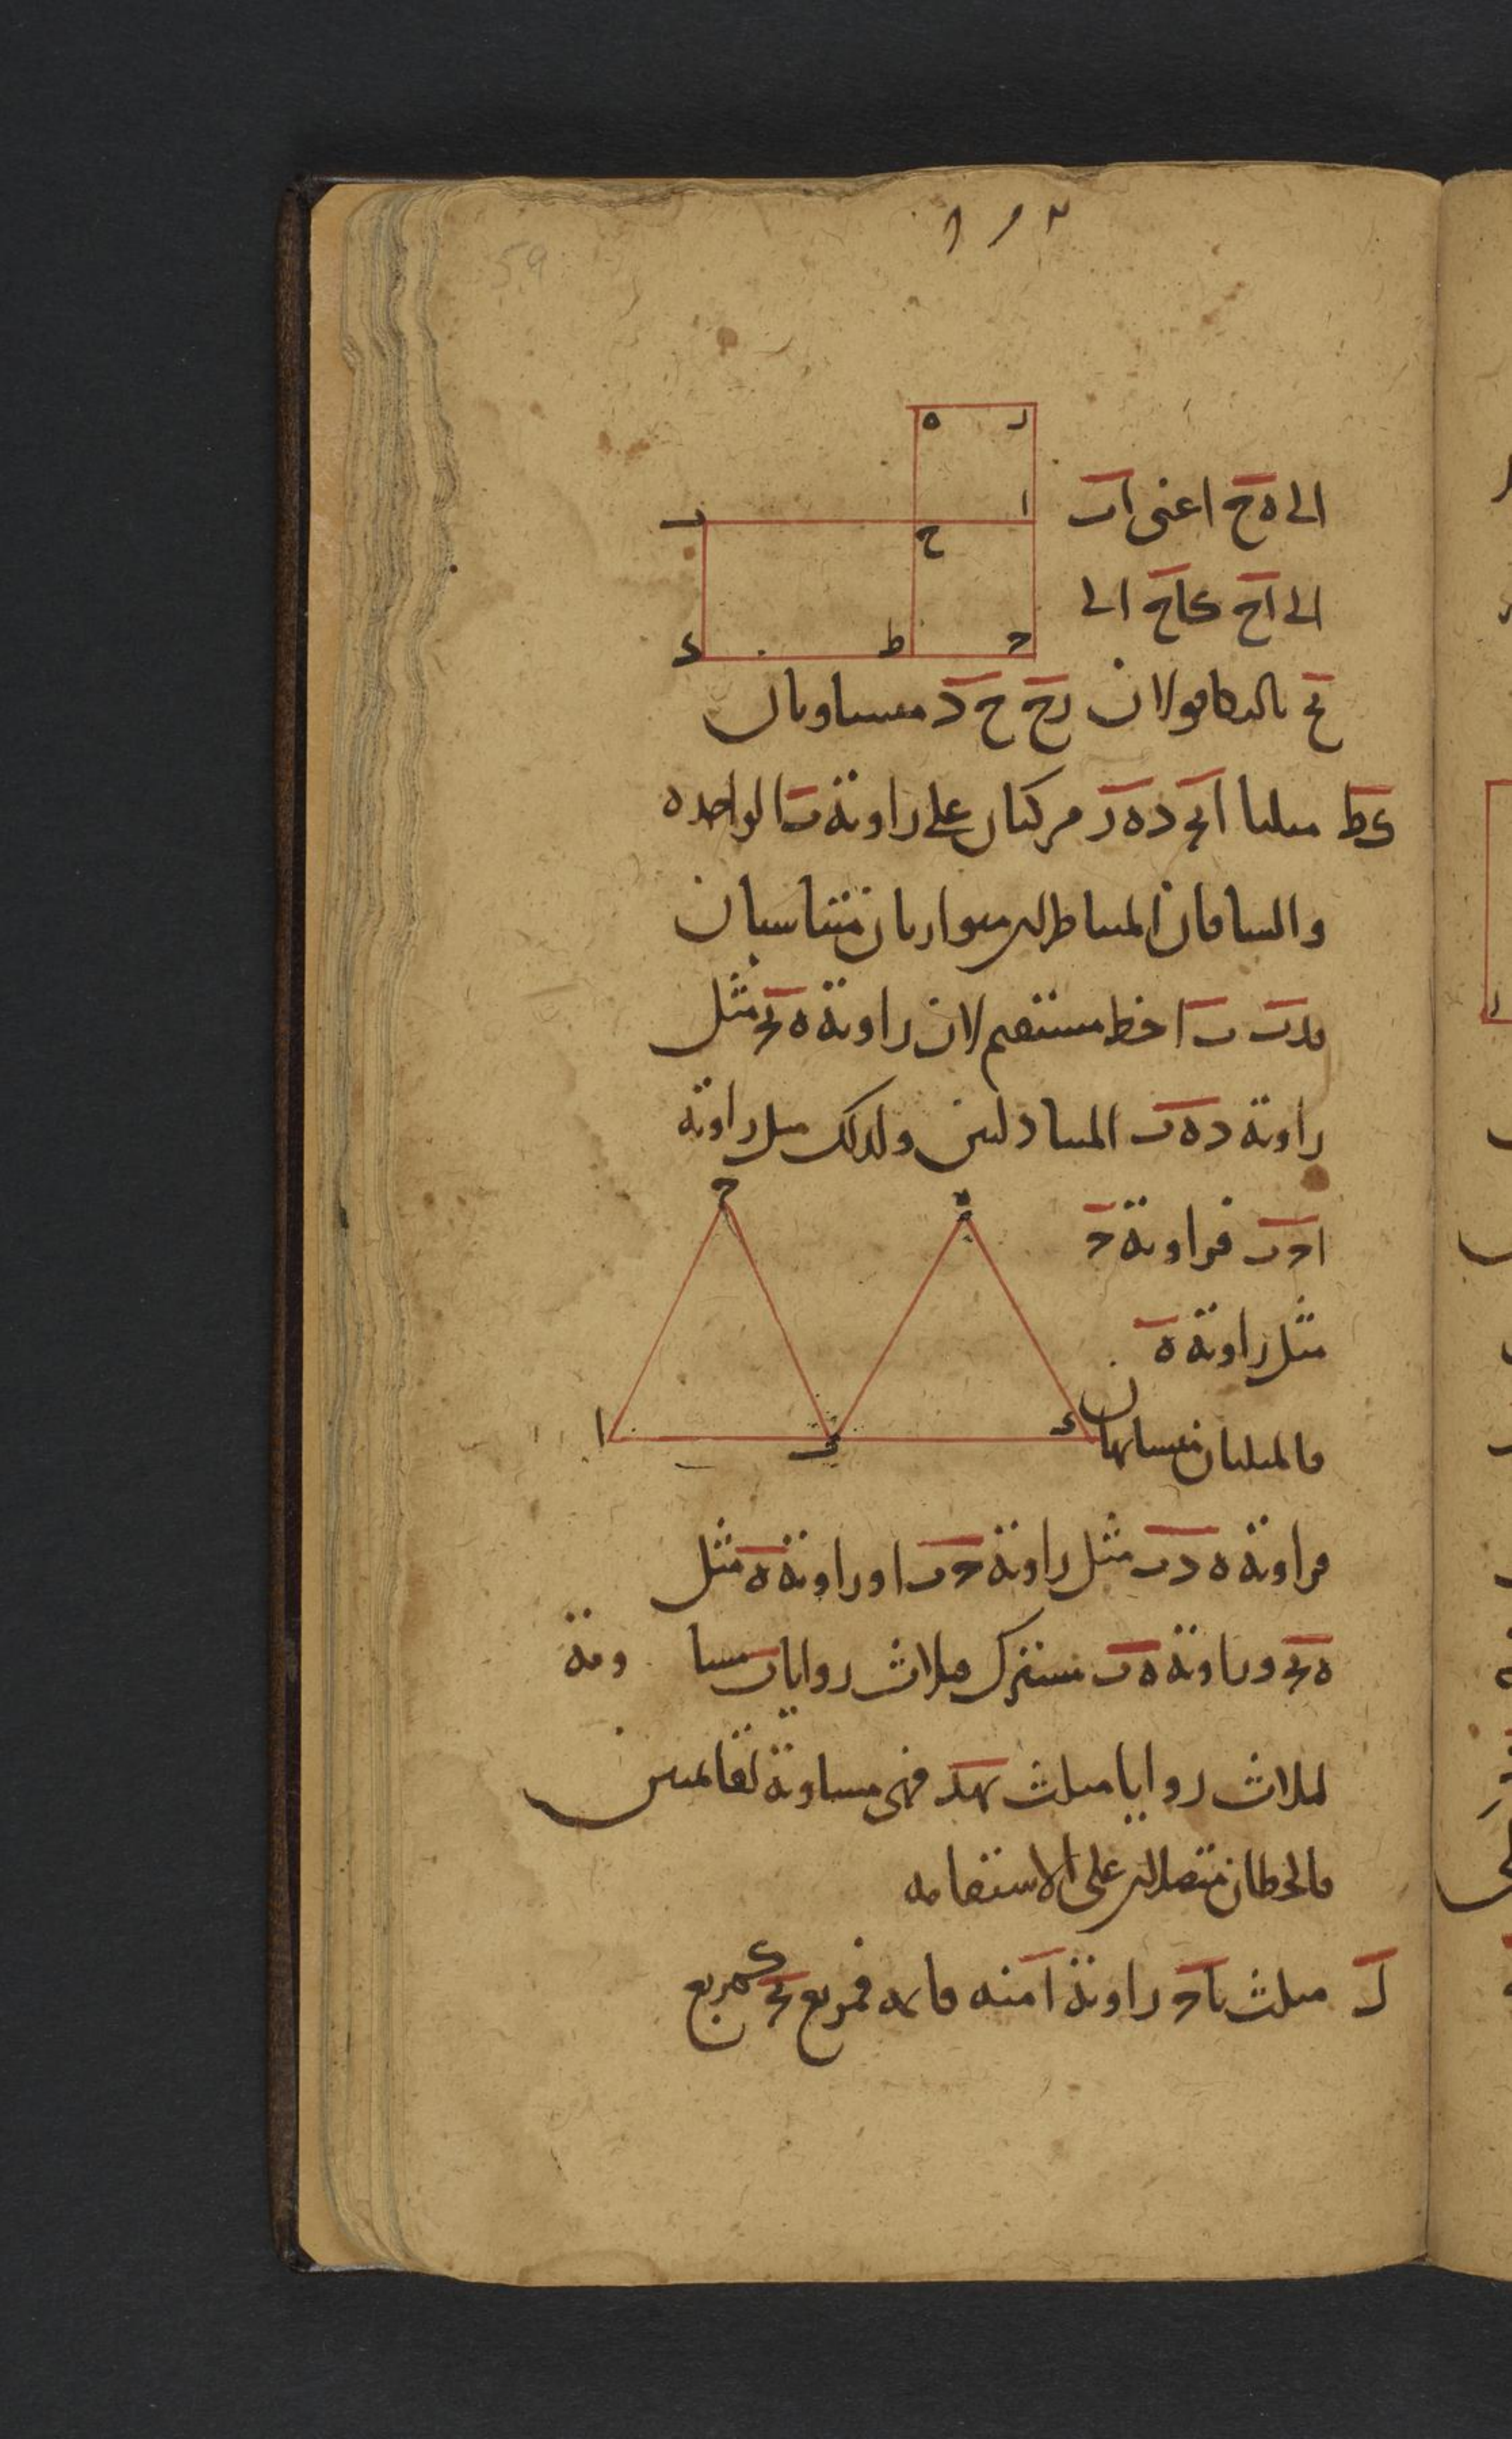 ١١٢
59
ه ر
الى ه ح اعنى ا ب
ب ا
ح
الى ا ح كاح الى
د ط ج
ح ب بالتكافو لان ر ح ح د متساويان
كط مثلثا ا ب ج د ه ر مركبان على زاوية ب الواحده
والساقان المتناظران متوازيان متناسبان
فد ب ب ا خط مستقيم لان زاوية ه ب ج مثل
زاوية د ه ب المتبادلتين ولذلك مثل زاوية
ج ه
ا ج ب فزاوية ج
مثل زاوية ه
ا ب د
فالمثلثان متشابهان
فزاوية ه د ب مثل زاوية ج ب ا وزاوية ه مثل
ه ب ج وزاوية ه ب مشترك فثلاث زوايا ب مساوية
لثلاث زوايا مثلث ب ه د فهي مساوية لقائمتين
فالخطان متصلان على الاستقامه
ل مثلث ب ا ج زاوية ا منه قايمه فمربع ب ج كمربع